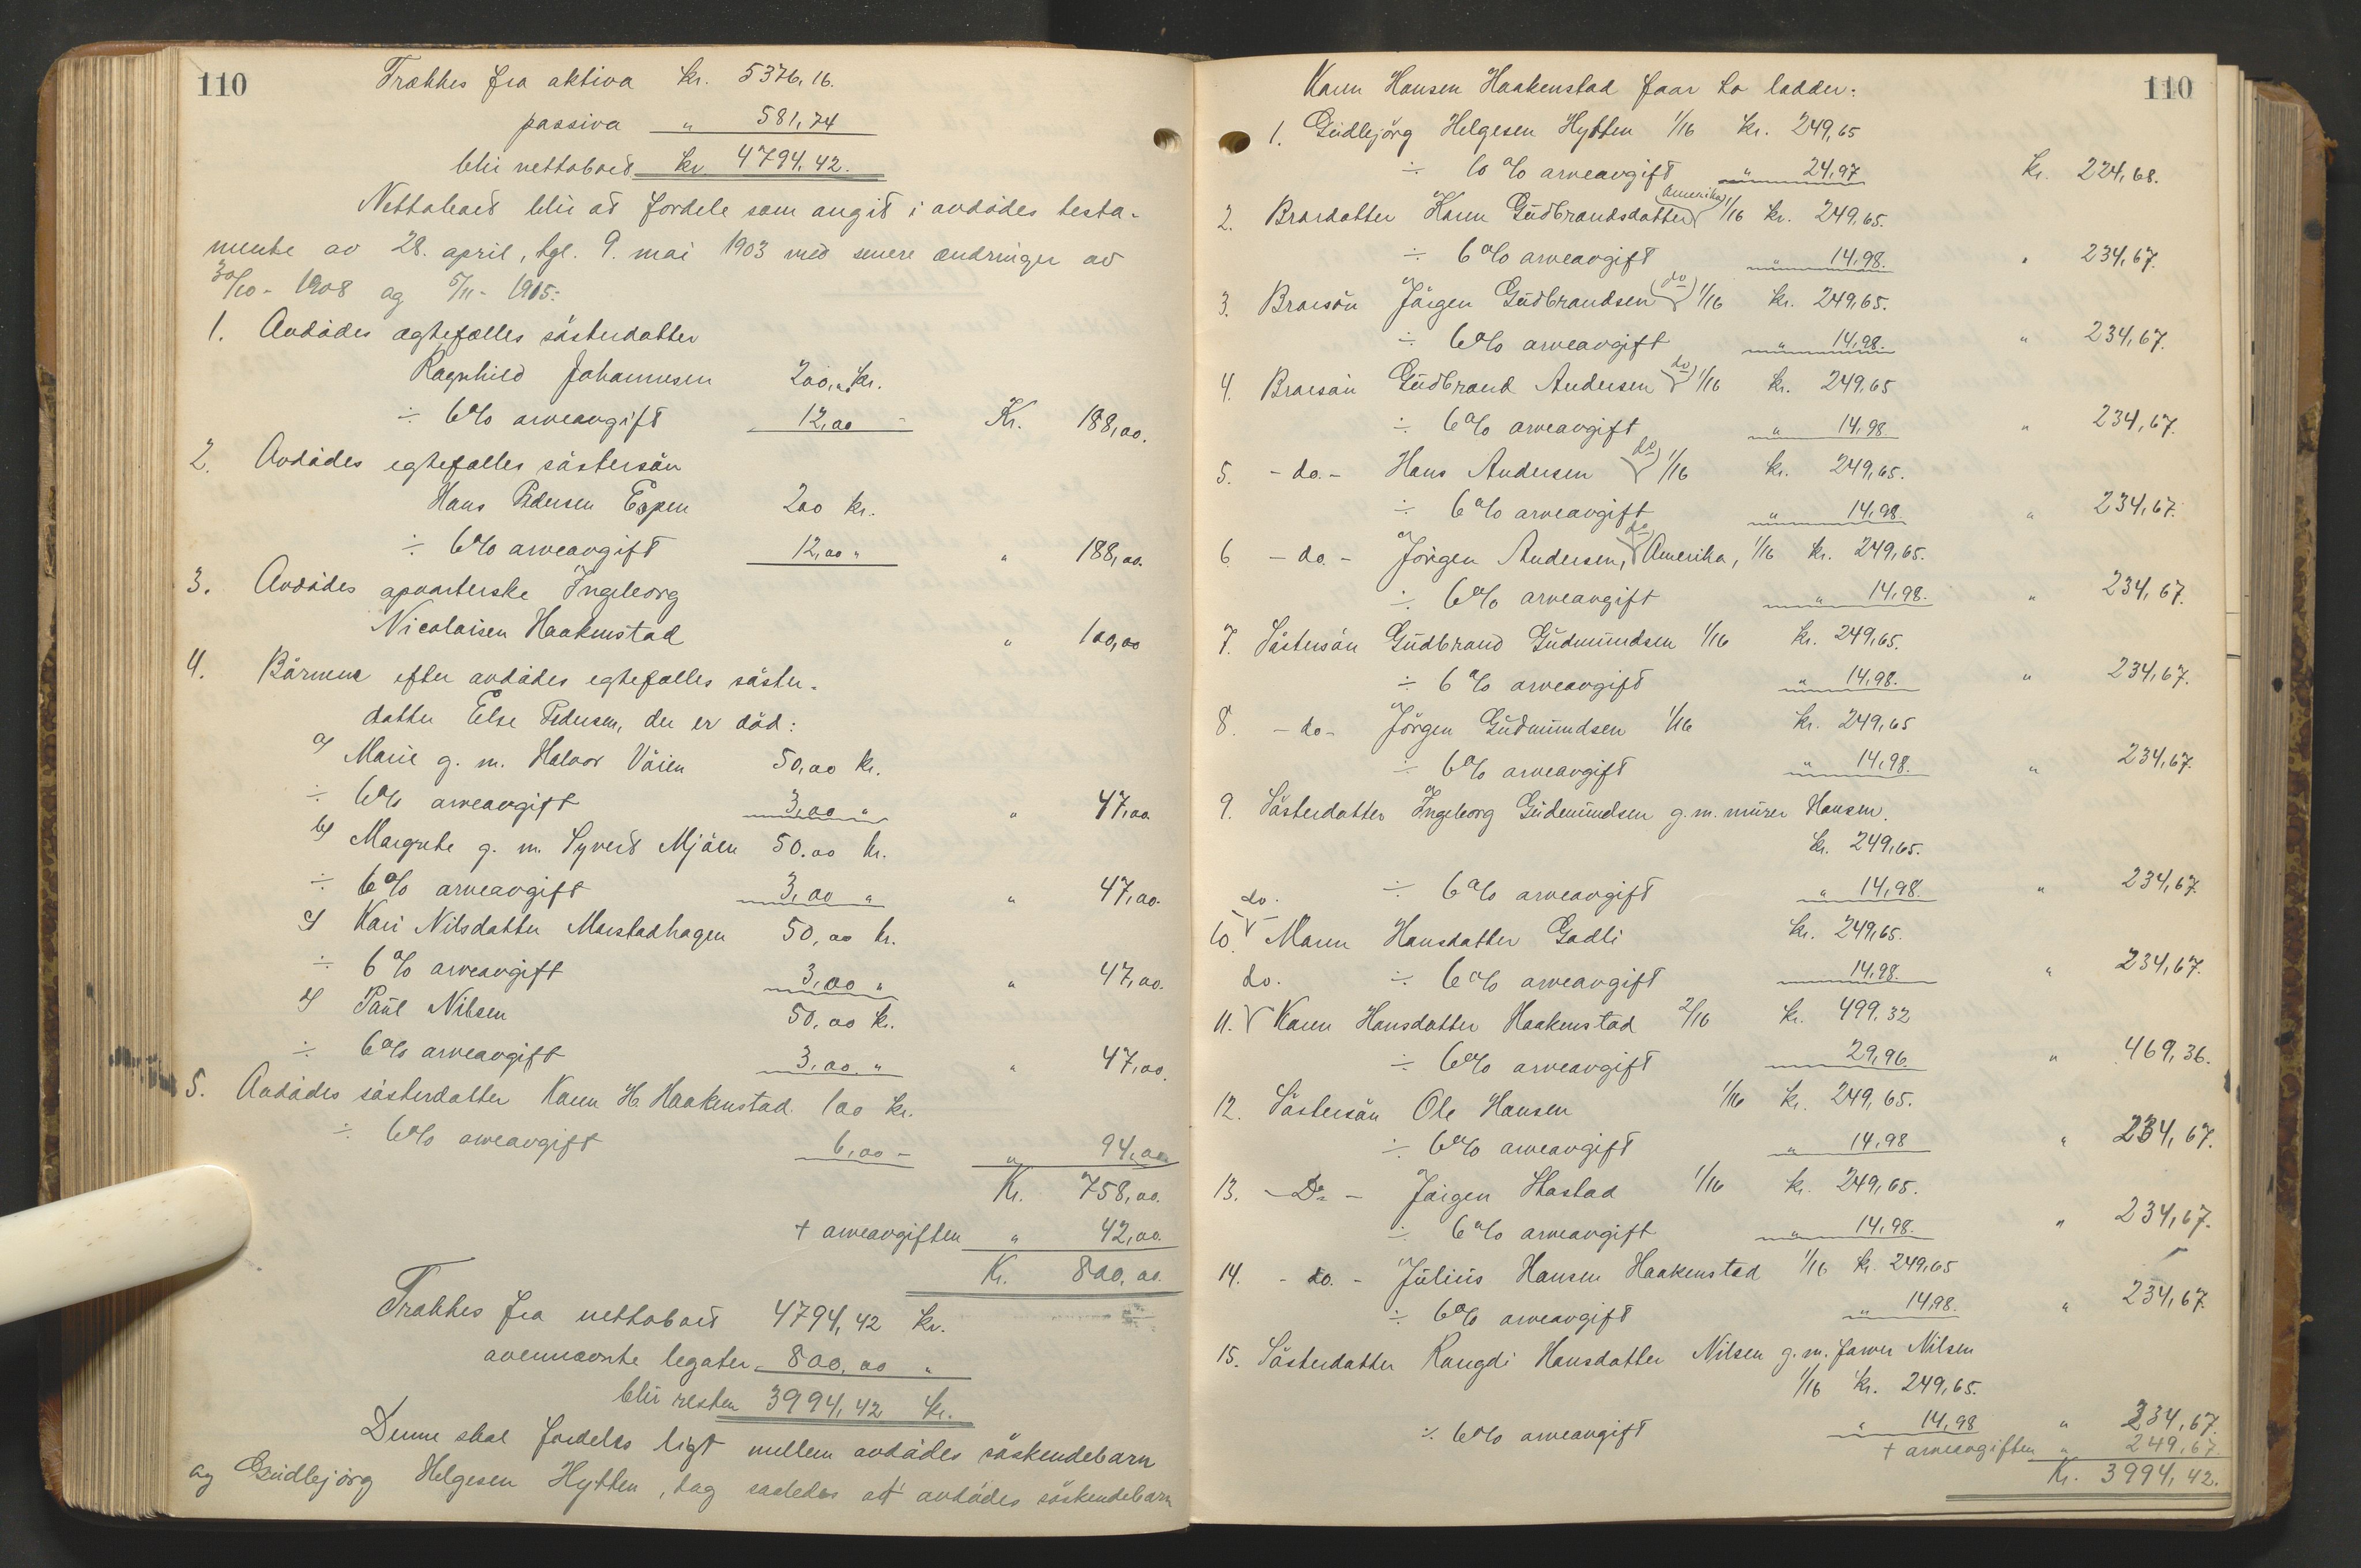 110
Trækkes fra aktiva kr. 5376,16.
passiva " 581,74
blir nettoboet kr 4794,42.
Nettoboet blir at fordele som angit i avdødes testa-
mente av 28. april, tgl. 9. mai 1903 med senere ændringer av
30/10 - 1908 og 5/11 - 1915:
1. Avdødes ægtefælles søsterdatter
Ragnhild Johannesen 200,- kr.
÷ 6% arveavgift 12,00 - Kr. 188,00.
2. Avdødes egtefælles søstersøn
Hans Pedersen Espen 200 kr.
÷ 6% arveavgift 12,00 " " 188,00.
3. Avdødes opvarterske Ingeborg
Nicolaisen Haakenstad " 100,00
4. Børnene efter avdødes egtefælles søster-
datter Else Pedersen, der er død:
a) Marie g. m. Halvor Vøien 50,00 kr.
÷ 6% arveavgift 3,00 " " 47,00.
b) Margrete g. m. Syvert Mjøen 50.00 kr.
÷ 6% arveavgift 3,00 " " 47,00.
c) Kari Nilsdatter Marstadhagen 50,00 kr.
÷ 6% arveavgift 3,00 " " 47,00.
d) Paul Nilsen 50,00 kr.
÷ 6% arveavgift 3,00. " " 47,00.
5. Avdødes søsterdatter Karen H. Haakenstad. 100 kr.
÷ 6% arveavgift 6,00 - " 94,00
Kr. 758,00.
+ arveavgiften " 42,00.
Kr. 800,00.
Trækkes fra nettoboet 4794,42 kr.
ovennævnte legater 800,00 "
blir resten 3994,42 kr.
Denne skal fordeles ligt mellem avdødes søskendebarn
og Gudbjørg Helgesen Hytten, dog saaledes at avdødes søskendebarn
110
Karen Hansen Haakenstad faar to lodder:
1. Gudbjørg Helgesen Hytten 1/16 kr. 249,65
÷ 10 % arveavgift " 24,97 kr. 224,68.
2. Brordatter Karen Gudbrandsdatter (Amerika) 1/16 kr. 249,65.
÷ 6% arveavgift " 14,98. " 234,67.
3. Brorsøn Jørgen Gudbrandsen (do) 1/16 kr. 249,65.
÷ 6% arveavgift " 14,98. " 234,67.
4. Brorsøn Gudbrand Andersen (do) 1/16 kr. 249,65
÷ 6% arveavgift " 14,98 " 234,67.
5. - do. - Hans Andersen (do) 1/16 kr. 249,65.
÷ 6% arveavgift " 14,98 " 234,67.
6. - do. - Jørgen Andersen, (do) Amerika, 1/16 kr. 249,65.
÷ 6% arveavgift " 14,98. " 234,67.
7. Søstersøn Gudbrand Gudmundsen 1/16 kr. 249,65.
÷ 6% arveavgift " 14,98. " 234,67.
8. - do - Jörgen Gudmundsen 1/16 kr. 249,65
÷ 6% arveavgift " 14,98. " 234,67.
9. Søsterdatter Ingeborg Gudmundsen g. m. murer Hansen.
kr. 249,65.
÷ 6% arveavgift " 14,98. " 234,67.
do.
10. Maren Hansdatter Gadli kr. 249,65.
÷ 6% arveavgift 14,98. " 234,67.
do.
11. Karen Hansdatter Haakenstad 2/16 kr. 499,32
÷ 6% arveavgift 29,96. " 469,36.
12. Søstersøn Ole Hansen 1/16 kr. 249,65.
÷ 6% arveavgift " 14,98 " 234,67.
13. - Do - Jørgen Stastad 1/16 kr. 249,65.
÷ 6% arveavgift " 14,98. " 234,67.
14. - do. - Julius Hansen Haakenstad 1/16 kr. 249,65
÷ 6% arveavgift " 14,98. " 234,67.
15. Søsterdatter Rangdi Hansdatter Nilsen g. m. farver Nilsen
1/16 kr. 249,65.
÷ 6% arveavgift " 14,98 " 234,67.
+ arveavgiften " 249,67
Kr. 3994,42.